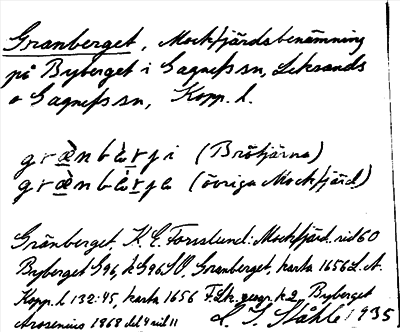 Granberget, Mockfjärdsbenämning
på Byberget i Gagnefs sn, Leksands
o Gagnefs sn, Kopp. l.
græ̀nbæ̀rji (Brötjärna)
græ̀nbæ̀rja (övriga Mockfjärd)
Gränberget. K. E. Forsslund: Mockfjärd. sid 60
Byberget G96, k G96 SV, Granberget, karta 1656 L.A.
Kopp. l 132:45, karta 1656 Byberget
Arosenius 1868 del 4 sid 11
L. G. Ståhle 1935